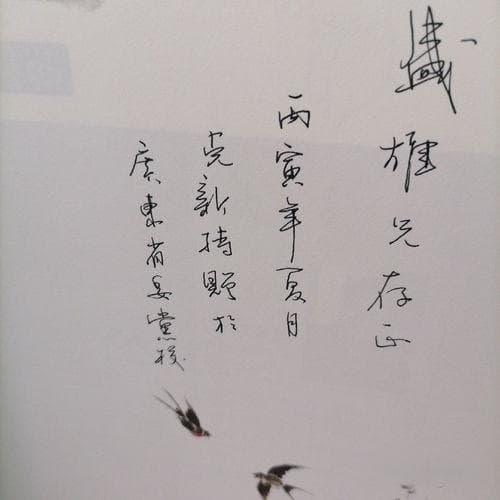 雄兄存正
丙寅年夏月
新持题於
廣東省委黨校